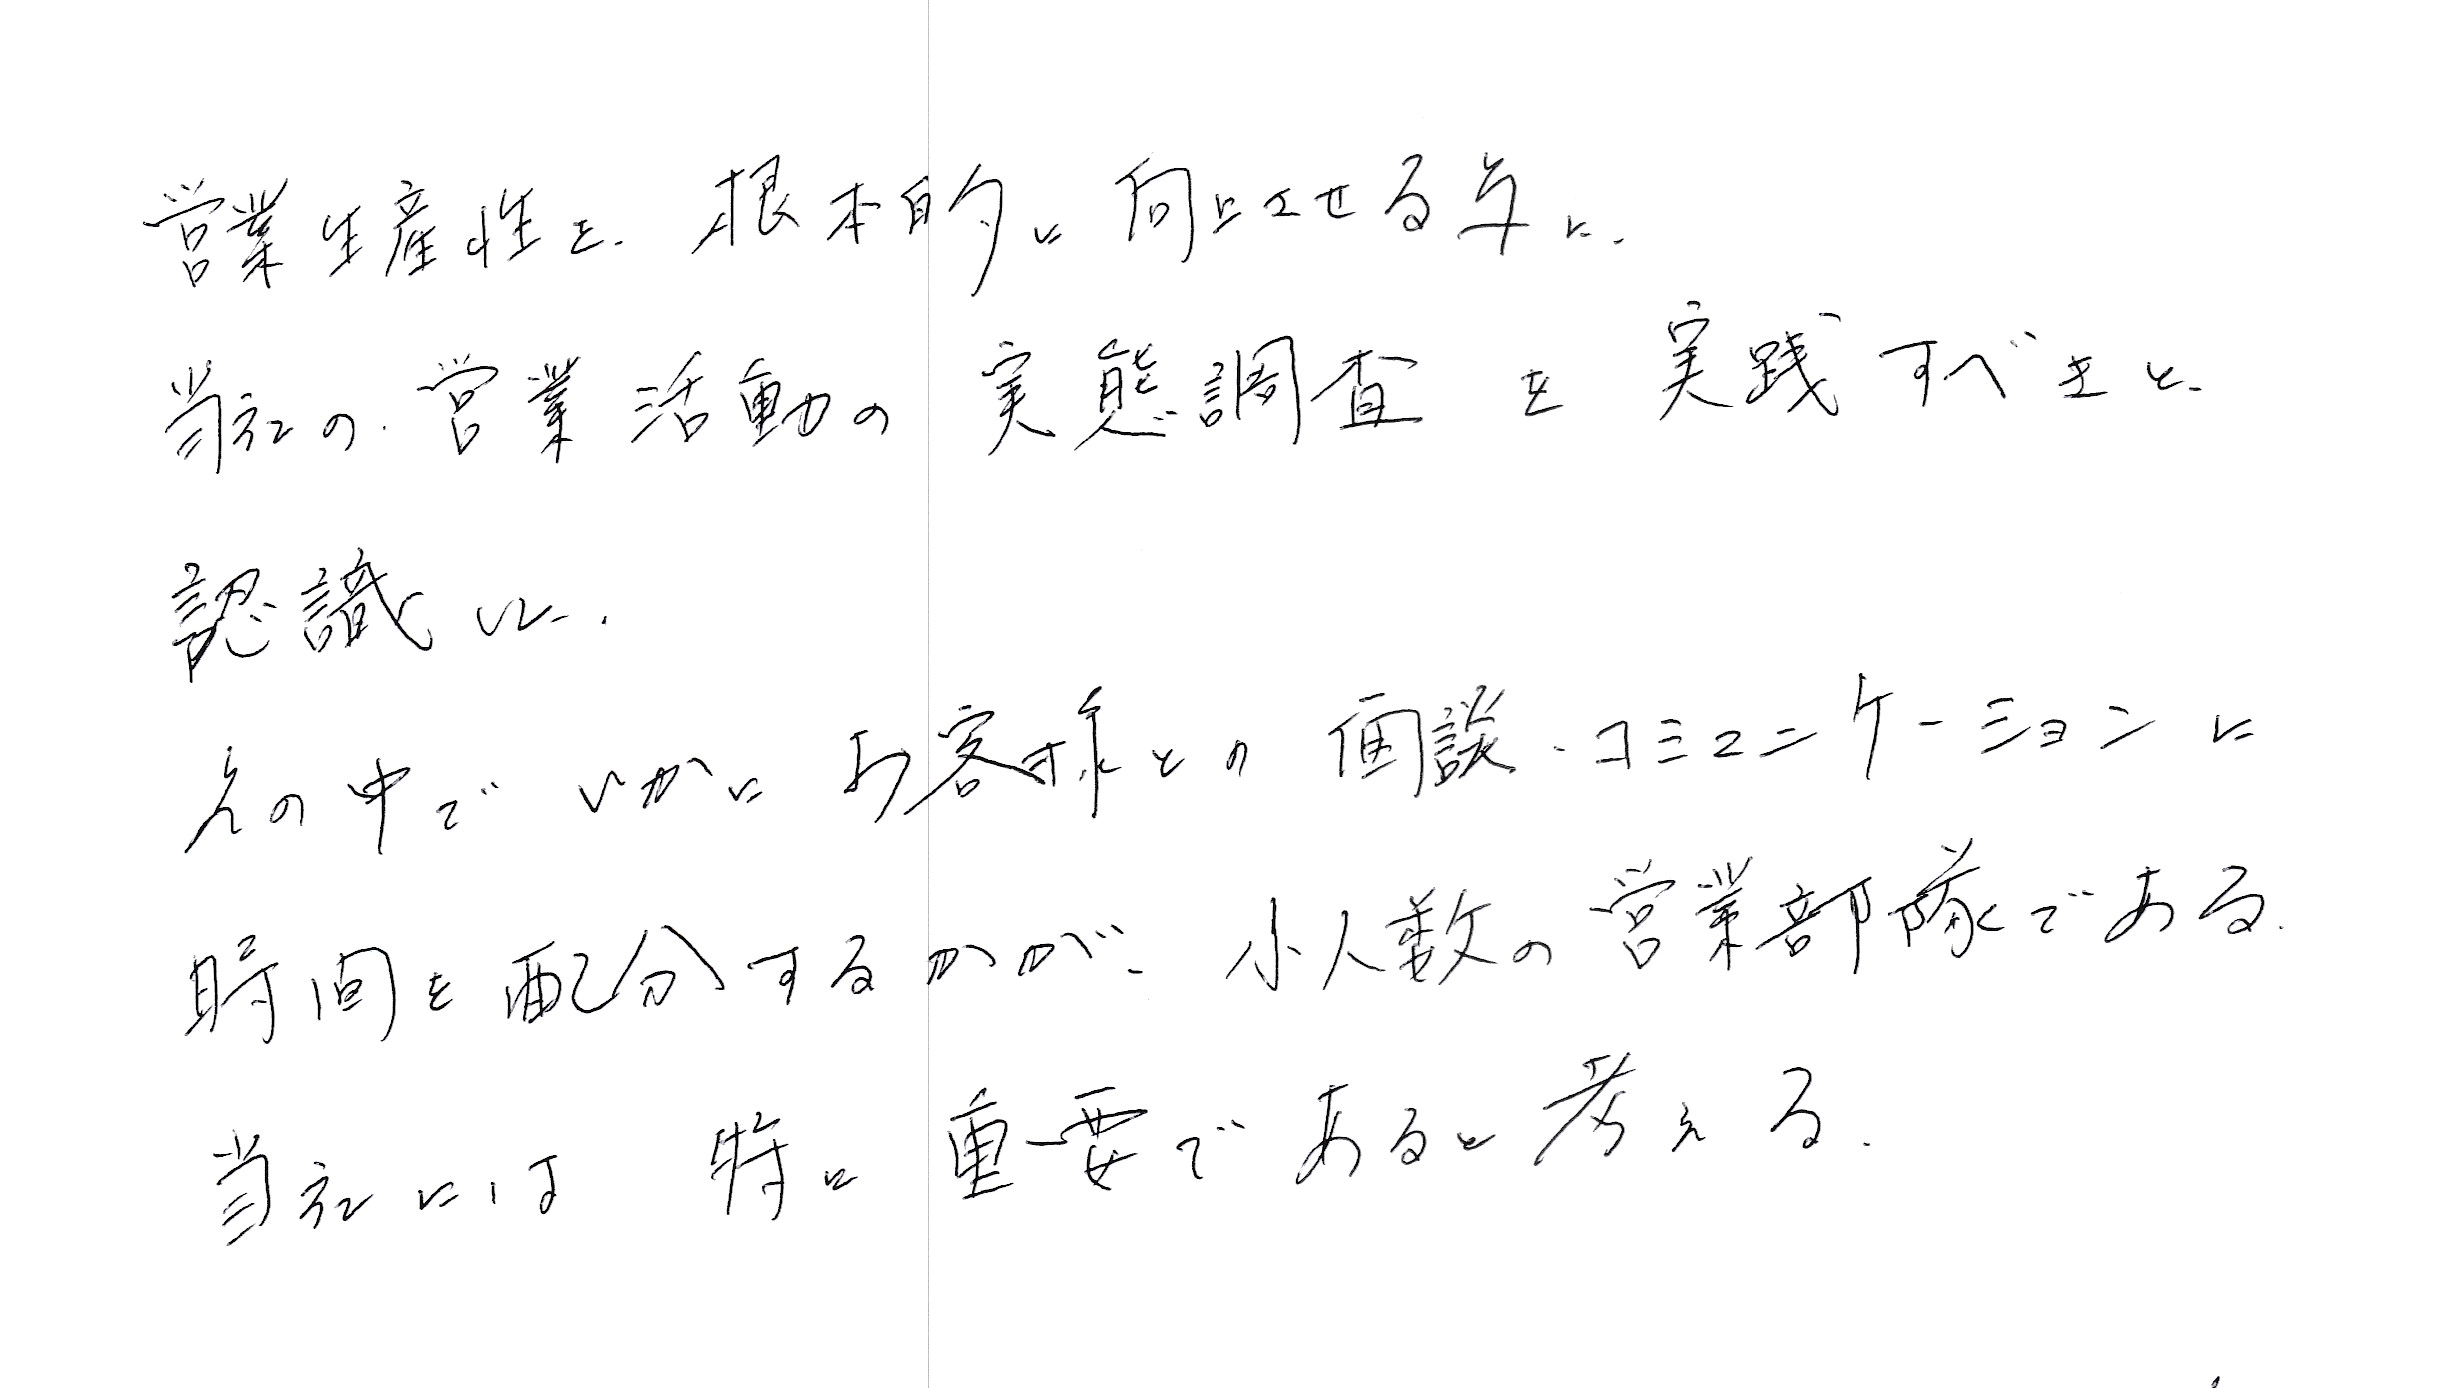 営業生産性を、根本的に向上させる為に、
当社の、営業活動の実態調査を実践すべきと、
認識した。
その中でいかにお客様との面談・コミュニケーションに
時間を配分するかが、小人数の営業部隊である、
当社には特に重要であると考える。